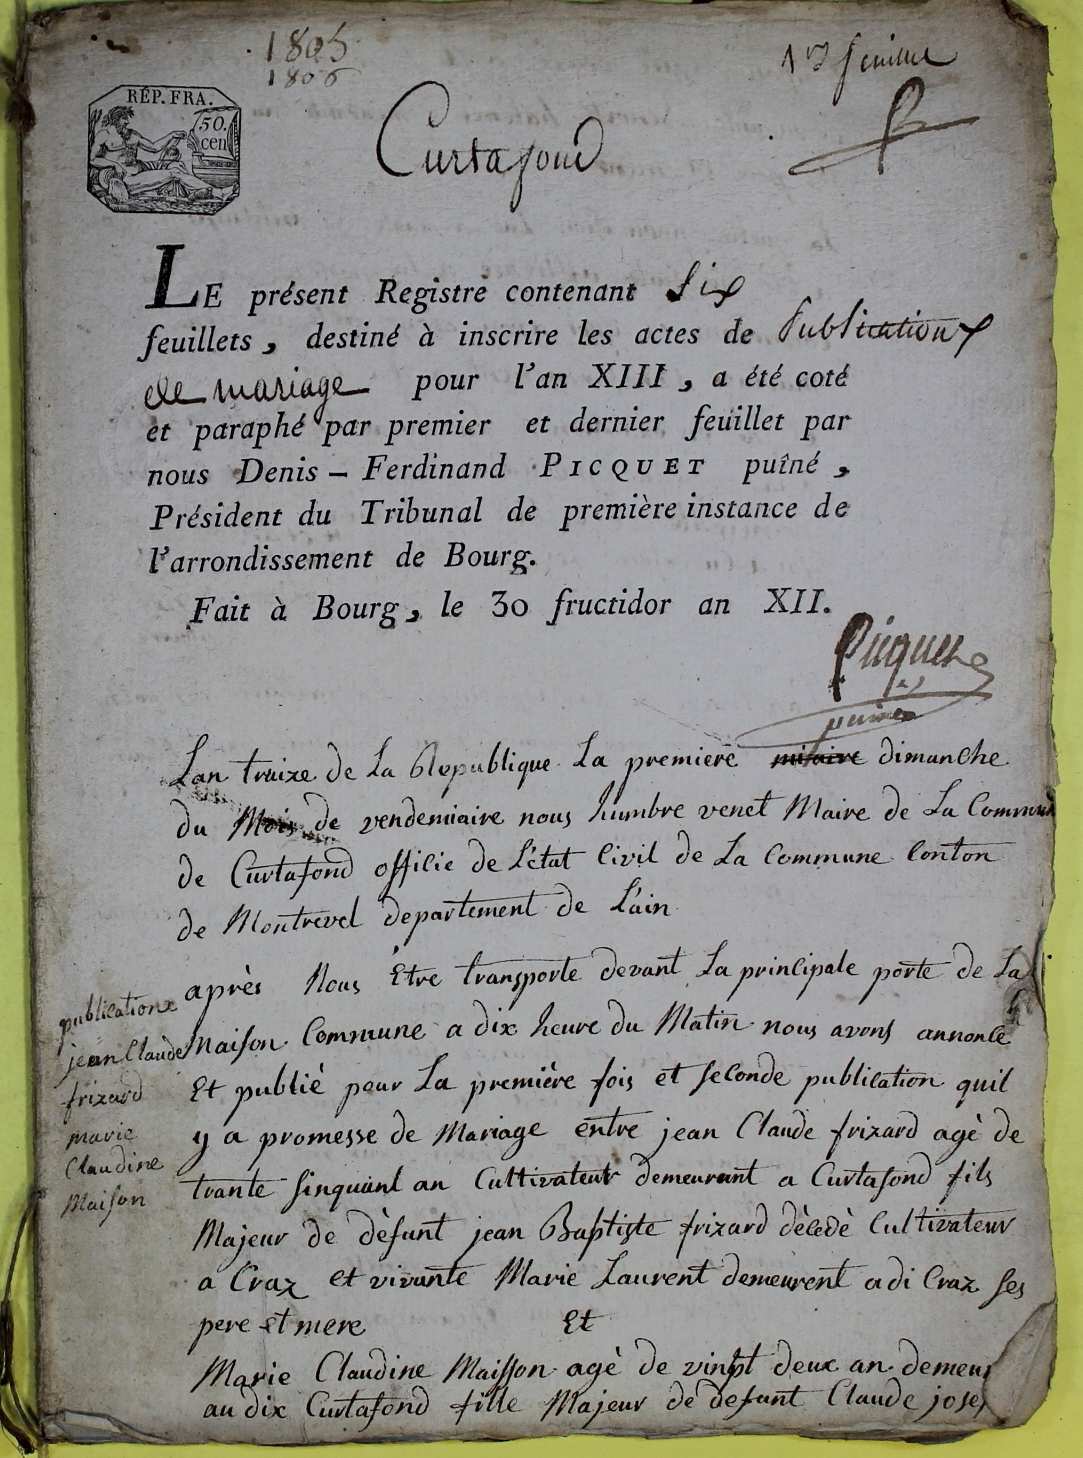 1805
1806
1er feuillet
RÉP. FRA.
50.
cen
Curtafond
LE présent Registre contenant Six
feuillets, destiné à inscrire les actes de Publication
de mariage pour l'an XIII, a été coté
et paraphé par premier et dernier feuillet par
nous Denis - Ferdinand PICQUET puîné,
Président du Tribunal de première instance de
l'arrondissement de Bourg.
Fait à Bourg, le 30 fructidor an XII.
Picquet
puiné
Lan traize de La Republique La premiere dimanche
du Mois de vendemiaire nous humbre venet Maire de La Commun
de Curtafond officie de L'état Civil de La Commune Conton
de Montrevel departement de L'ain
après Nous Être transporte devant La principale porte de La
Maison Commune a dix heure du Matin nous avons annonce
Et publié pour La première fois et seconde publication quil
y a promesse de Mariage entre jean Claude frizard agè de
trante sinquant an Cultivateur demeurant a Curtafond fils
Majeur de dèfunt jean Baptiste frizard dècedè Cultivateur
a Craz et vivante Marie Laurent demeurent adi Craz ses
pere et mere Et
Marie Claudine Maisson agè de vingt deux an demeur
au dix Curtafond fille Majeur de defunt Claude josep
publication
jean Claude
frizard
marie
Claudine
Maison